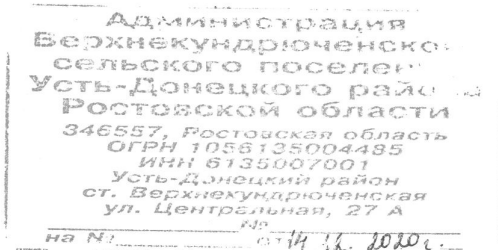 Администрация
Верхнекундрюченско
сельского поселен
Усть-Донецкого рай
Ростовской области
346557, Ростовская область
ОГРН 1056135004485
ИНН 6135007001
Усть-Донецкий район
ст. Верхнекундрюченская
ул. Центральная, 27 А
№
на № от 14 2020 г.